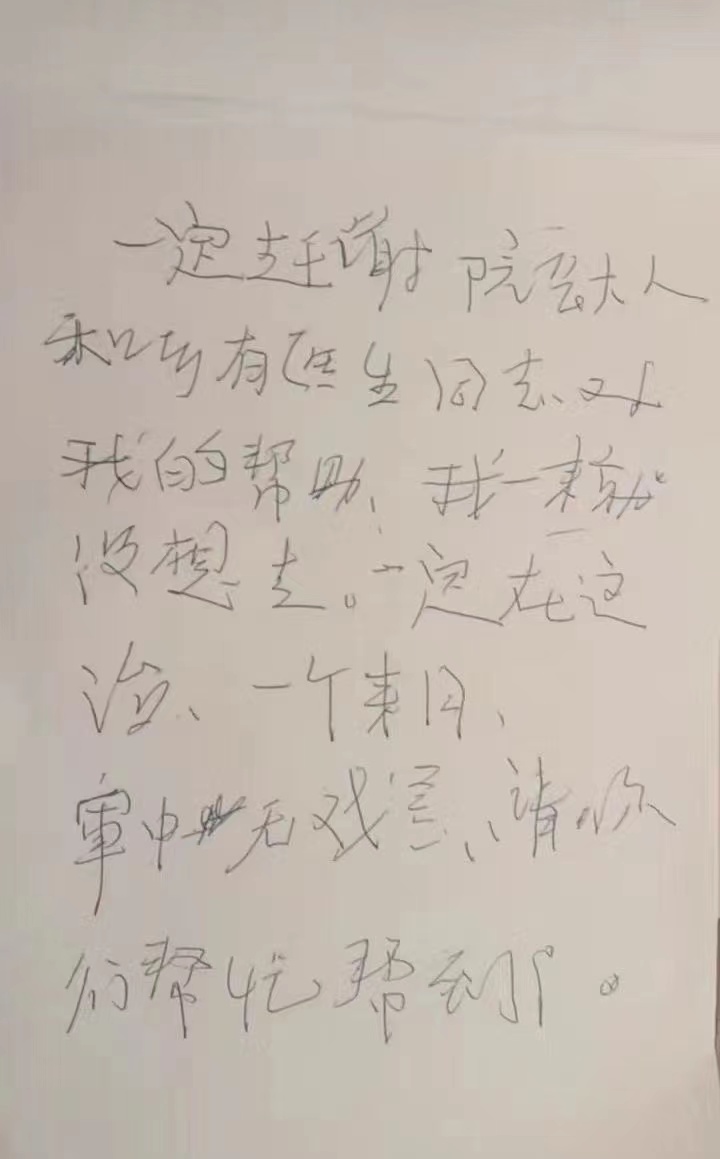 一定 谢 院 大人
和所有医生同志、对
我的帮助、我一来就
没想走。一定在这
治、一个来月、
军中 无戏言、请你
们帮忙帮到 。